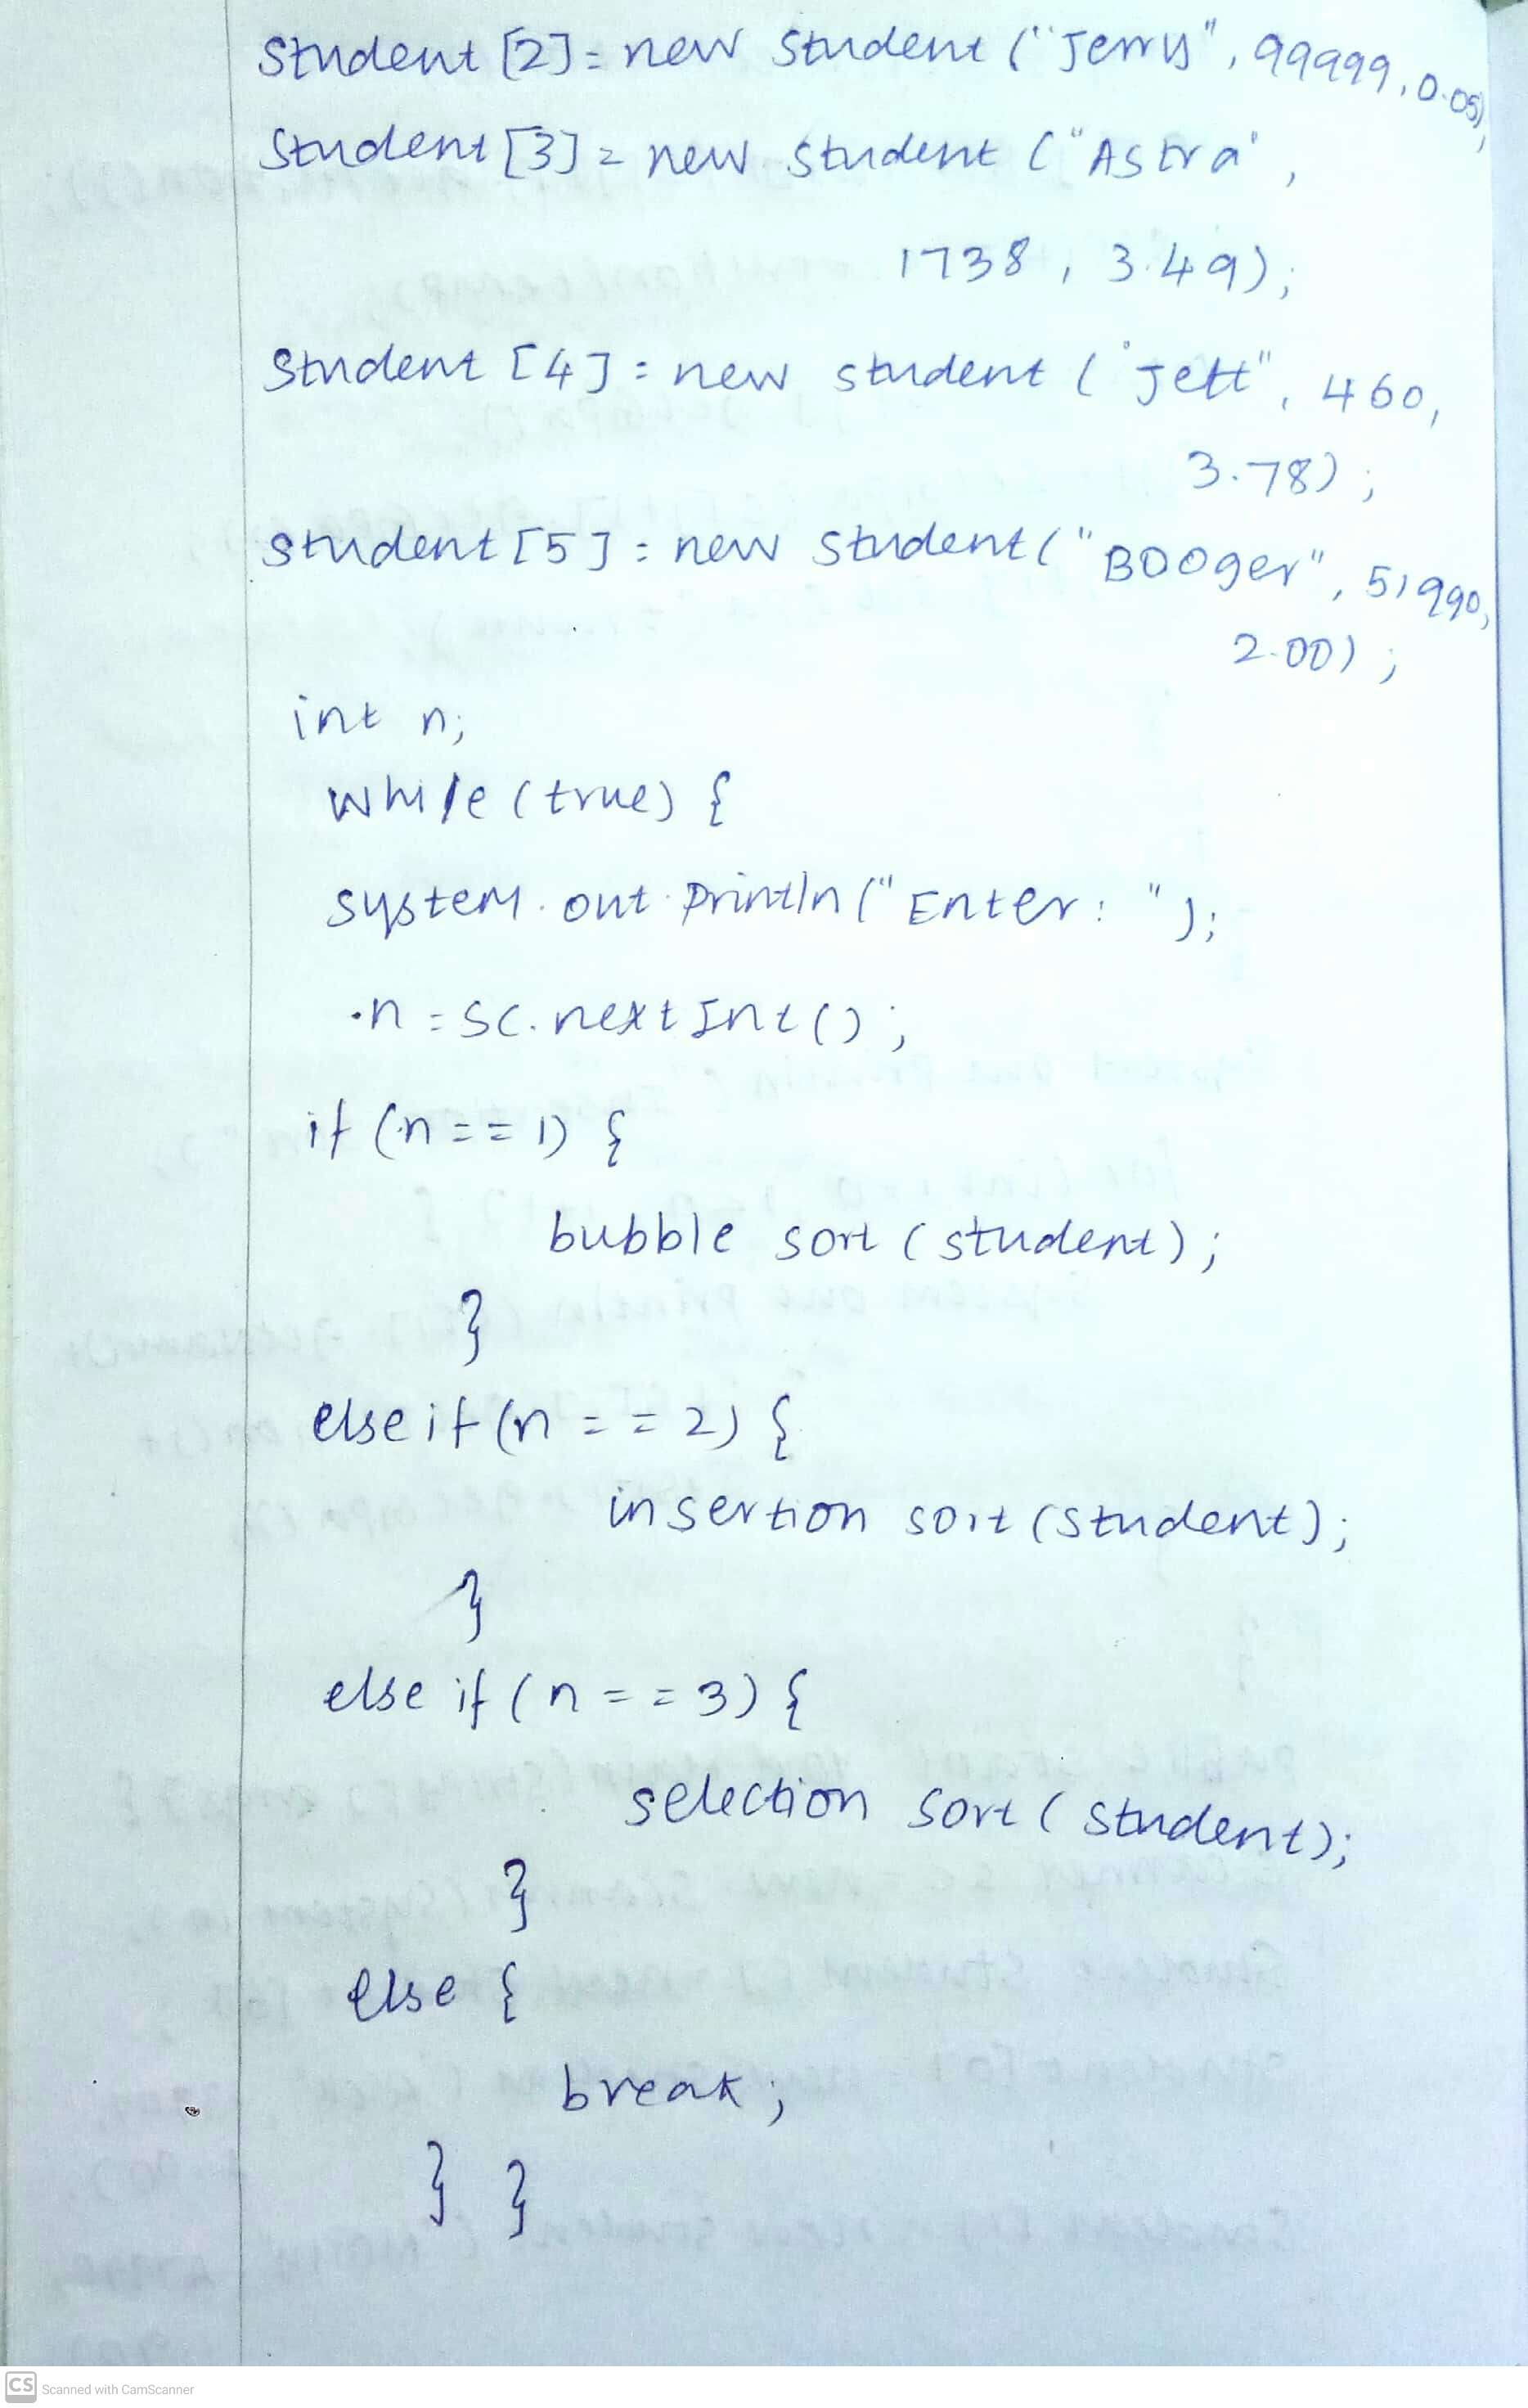 Student [2] = new Student ("Jerry", 99999, 0.05);
Student [3] = new Student ("Astra",
1738, 3.49);
Student [4] = new student ("Jett", 460,
3.78);
student [5] = new Student ("BOOger", 51990,
2.00);
int n;
while (true) {
system.out.println ("Enter: ");
n = sc.nextInt();
if (n == 1) {
bubble sort (student);
}
else if (n == 2) {
insertion sort (student);
}
else if (n == 3) {
selection sort (student);
}
else {
break;
} }
CS Scanned with CamScanner